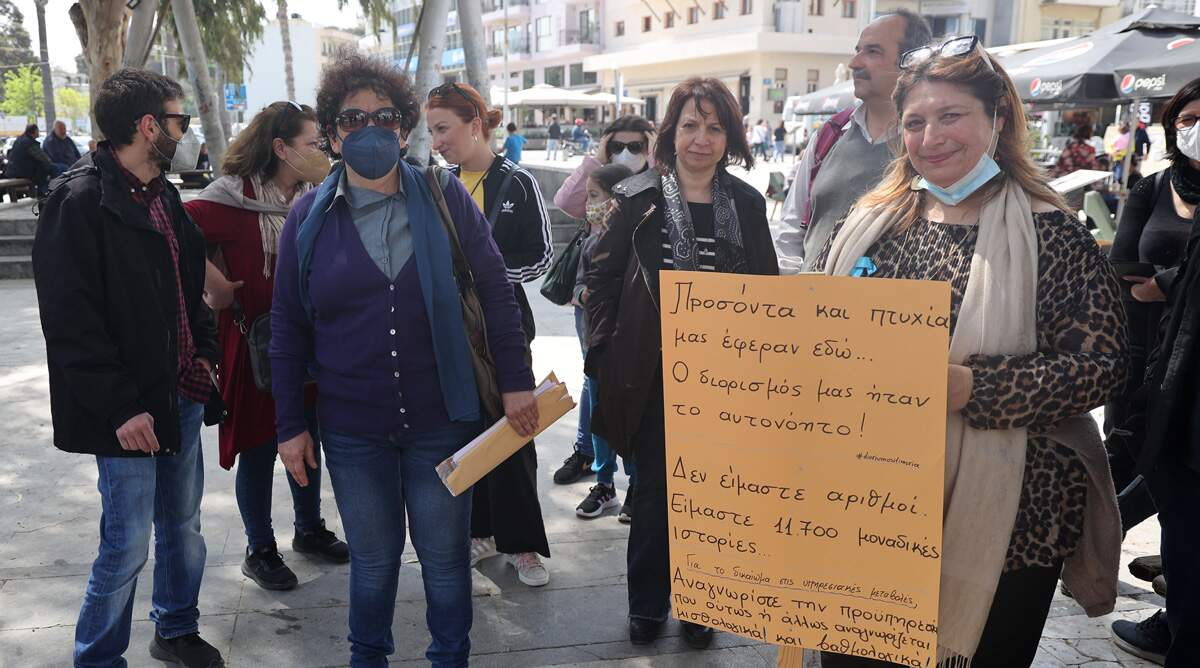 pepsi
pepsi
Προσόντα και πτυχία
μας έφεραν εδώ...
Ο διορισμός μας ήταν
το αυτονόητο!
Δεν είμαστε αριθμοί.
Είμαστε 11.700 μοναδικές
ιστορίες...
Για το δικαίωμα στις υπηρεσιακές μεταβολές,
Αναγνωρίστε την προϋπηρεσία
που ούτως ή άλλως αναγνωρίζεται
μισθολογικά! και βαθμολογικά!